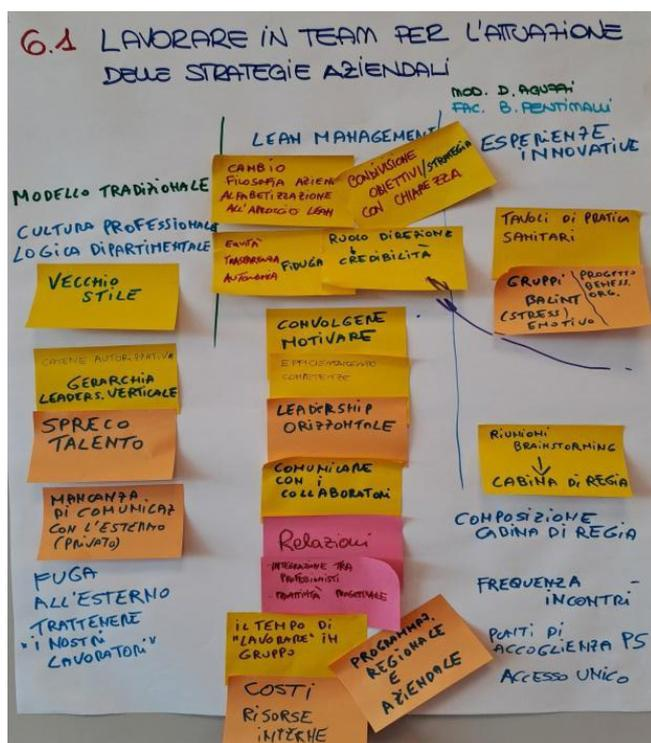 6.1 LAVORARE IN TEAM PER L'ATTUAZIONE
DELLE STRATEGIE AZIENDALI
MOD. D. AGUZZI
FAC. B. PENTIMALLI
MODELLO TRADIZIONALE
CULTURA PROFESSIONALE
LOGICA DIPARTIMENTALE
VECCHIO
STILE
GERARCHIA
LEADERS. VERTICALE
SPRECO
TALENTO
MANCANZA
DI COMUNICAZ
CON L'ESTERNO
(PRIVATO)
FUGA
ALL'ESTERNO
TRATTENERE
"I NOSTRI
LAVORATORI"
LEAN MANAGEMENT
CAMBIO
FILOSOFIA AZIEN
ALFABETIZZAZIONE
ALL'APPROCCIO LEAN
CONDIVISIONE
OBIETTIVI/STRATEGIA
CON CHIAREZZA
EQUITÀ
TRASPARENZA
AUTONOMIA
FIDUCIA
RUOLO DIREZIONE
CREDIBILITÀ
COINVOLGERE
MOTIVARE
EFFICIENTAMENTO
COMPETENZE
LEADERSHIP
ORIZZONTALE
COMUNICARE
CON I
COLLABORATORI
Relazioni
INTEGRAZIONE TRA
PROFESSIONISTI
IL TEMPO DI
"LAVORARE" IN
GRUPPO
PROGRAMMAZ.
REGIONALE
E
AZIENDALE
COSTI
RISORSE
INTERNE
ESPERIENZE
INNOVATIVE
TAVOLI DI PRATICA
SANITARI
GRUPPI
BALINT
(STRESS)
EMOTIVO
PROGETTO
BENESS.
ORG.
RIUNIONI
BRAINSTORMING
CABINA DI REGIA
COMPOSIZIONE
CABINA DI REGIA
FREQUENZA
INCONTRI
PUNTI DI
ACCOGLIENZA PS
ACCESSO UNICO